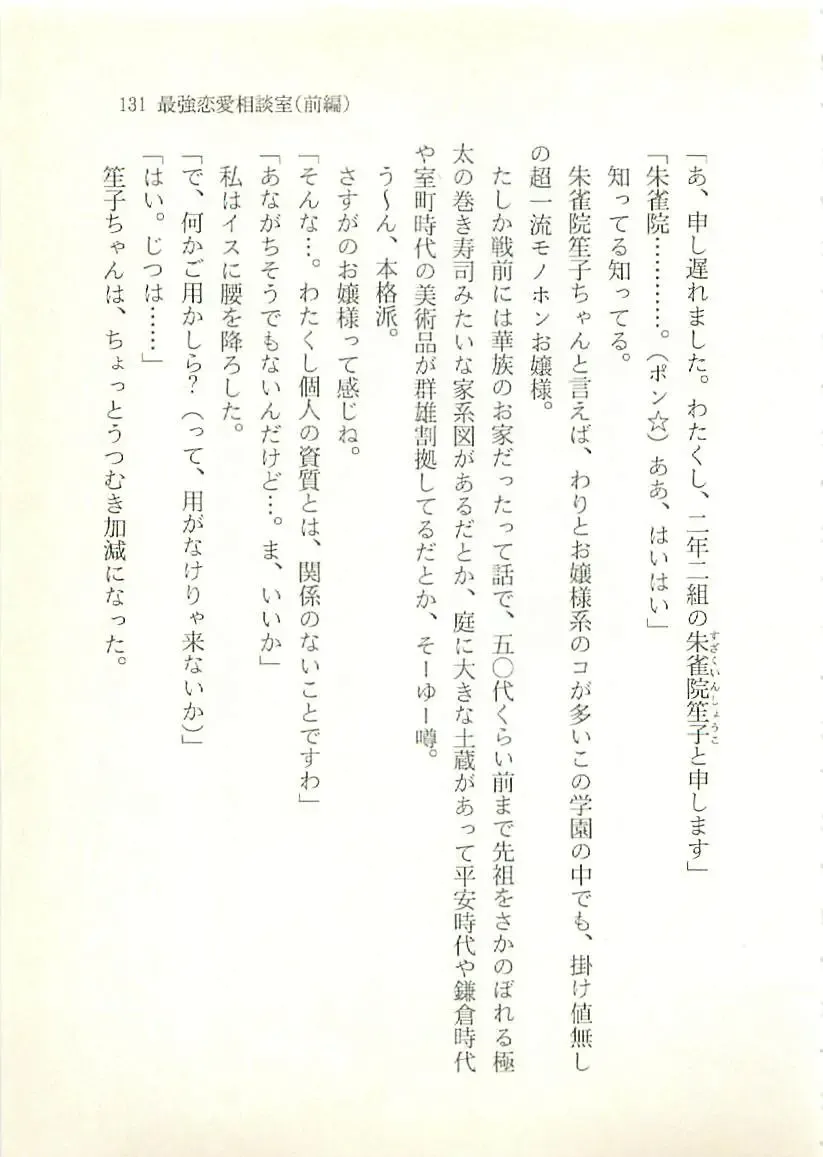 131 最強恋愛相談室(前編)
「あ、申し遅れました。わたくし、二年二組の朱雀院笙子と申します」
すざくいんしょうこ
「朱雀院…………。(ポン☆)ああ、はいはい」
知ってる知ってる。
朱雀院笙子ちゃんと言えば、わりとお嬢様系のコが多いこの学園の中でも、掛け値無し
の超一流モノホンお嬢様。
たしか戦前には華族のお家だったって話で、五〇代くらい前まで先祖をさかのぼれる極
太の巻き寿司みたいな家系図があるだとか、庭に大きな土蔵があって平安時代や鎌倉時代
や室町時代の美術品が群雄割拠してるだとか、そーゆー噂。
う〜ん、本格派。
さすがのお嬢様って感じね。
「そんな…。わたくし個人の資質とは、関係のないことですわ」
「あながちそうでもないんだけど…。ま、いいか」
私はイスに腰を降ろした。
「で、何かご用かしら?(って、用がなけりゃ来ないか)」
「はい。じつは……」
笙子ちゃんは、ちょっとうつむき加減になった。